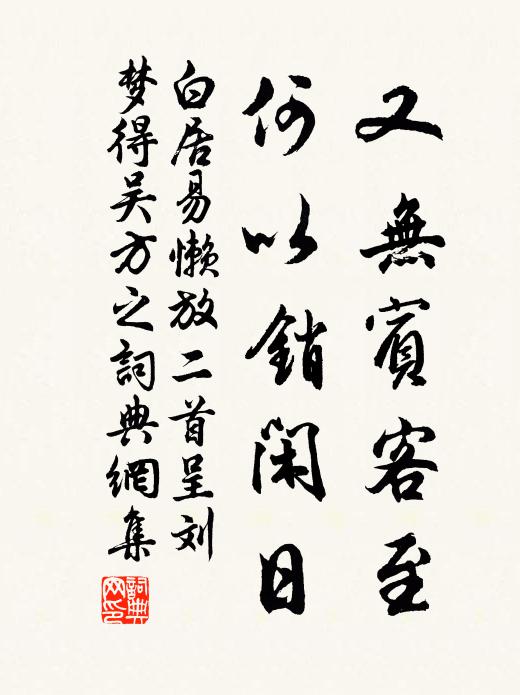 又無賓客至
何以銷閑日
白居易懒放二首呈刘
梦得吴方之詞典網集
詞典
网印